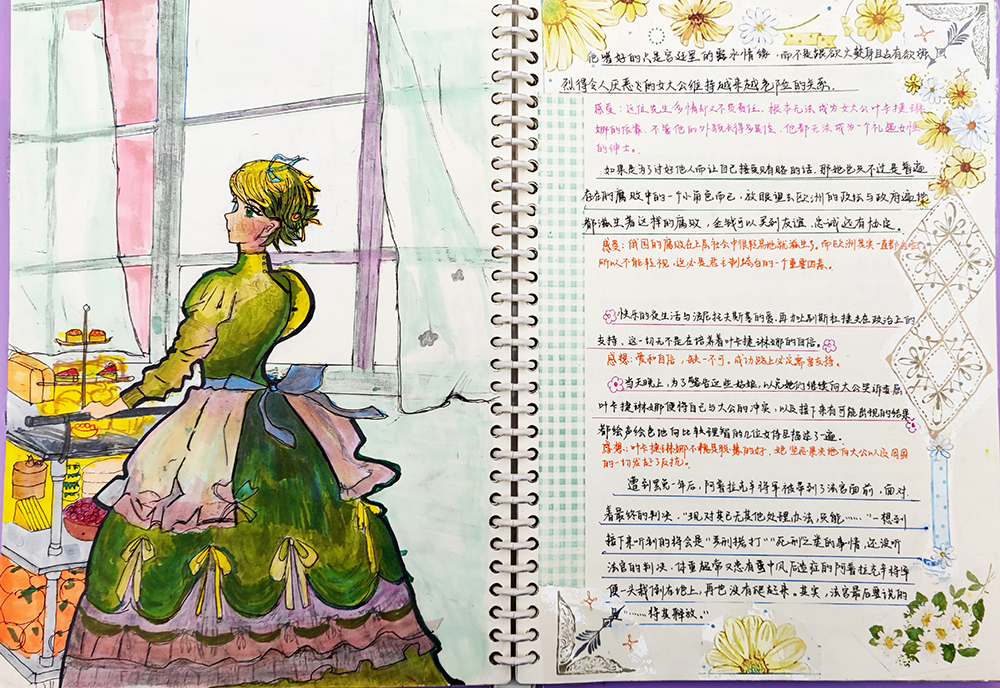 他嗜好的只是宫廷里的露水情缘，而不是跟欲火焚身且占有欲强
烈得令人厌恶飞的女大公维持越来越危险的关系。
感受：这位先生多情却又不负责任，根本无法成为女大公叶卡捷琳
娜的依靠，不管他的外貌长得多英俊，他都无法成为一个礼遇女性
的绅士。
如果是为了讨好他人而让自己接受贿赂的话，那她也只不过是普遍
存在的腐败中的一个小角色而已，放眼望去欧洲的政坛与政府遍地
都滋生着这样的腐败，金钱可以买到友谊，忠诚还有协定。
感受：俄国的腐败在上层社会中很轻易地就滋生了。而欧洲其实一直都
所以不能轻视，这也是君主制的一个重要因素。
快乐的夜生活与波尼托夫斯基的爱，再加上别斯杜捷夫在政治上的
支持，这一切无不是在培养着叶卡捷琳娜的自信。
感想：爱和自信，缺一不可。成功路上必定都需支持。
当天晚上，为了警告这些姑娘，以免她们继续向大公哭诉委屈
叶卡捷琳娜便将自己与大公的冲突，以及接下来有可能出现的结果
都绘声绘色地向比较理智的几位女侍臣描述了一遍。
感想：叶卡捷琳娜不愧是股票的好，她坚决果决地向大公以及周围
的一切发起了反抗。
遭到罢免一年后，阿普拉克辛将军被带到了法官面前，面对
着最终的判决，“现对其已无其他处理办法，只能……”一想到
接下来听到的将会是“受刑拷打”“死刑之类的事情，还没听
法官的判决，体重超常又患有中风后遗症的阿普拉克辛将军
便一头栽倒在地上，再也没有爬起来。其实，法官最后要说的
是“……将其释放。”